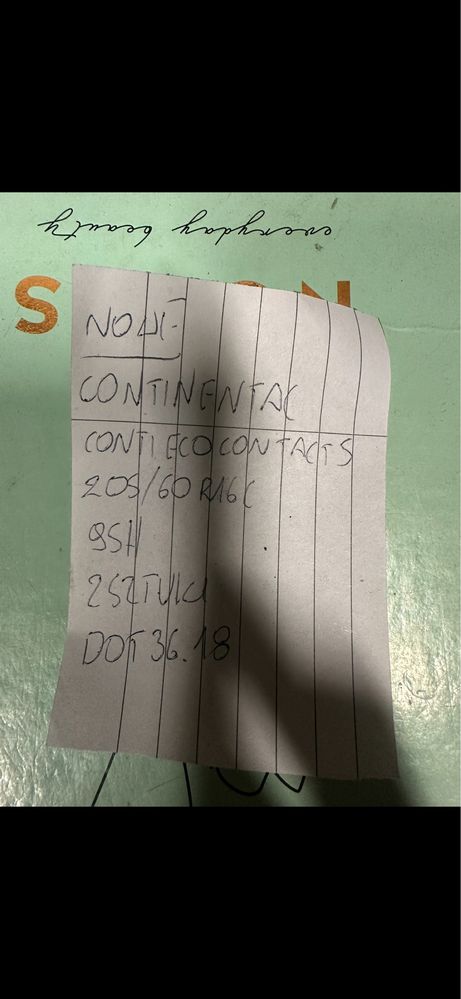 everyday beauty
NOWE
CONTINENTAL
CONTI ECO CONTACT 5
205/60 R16 C
95H
2 SZTUKI
DOT 36.18